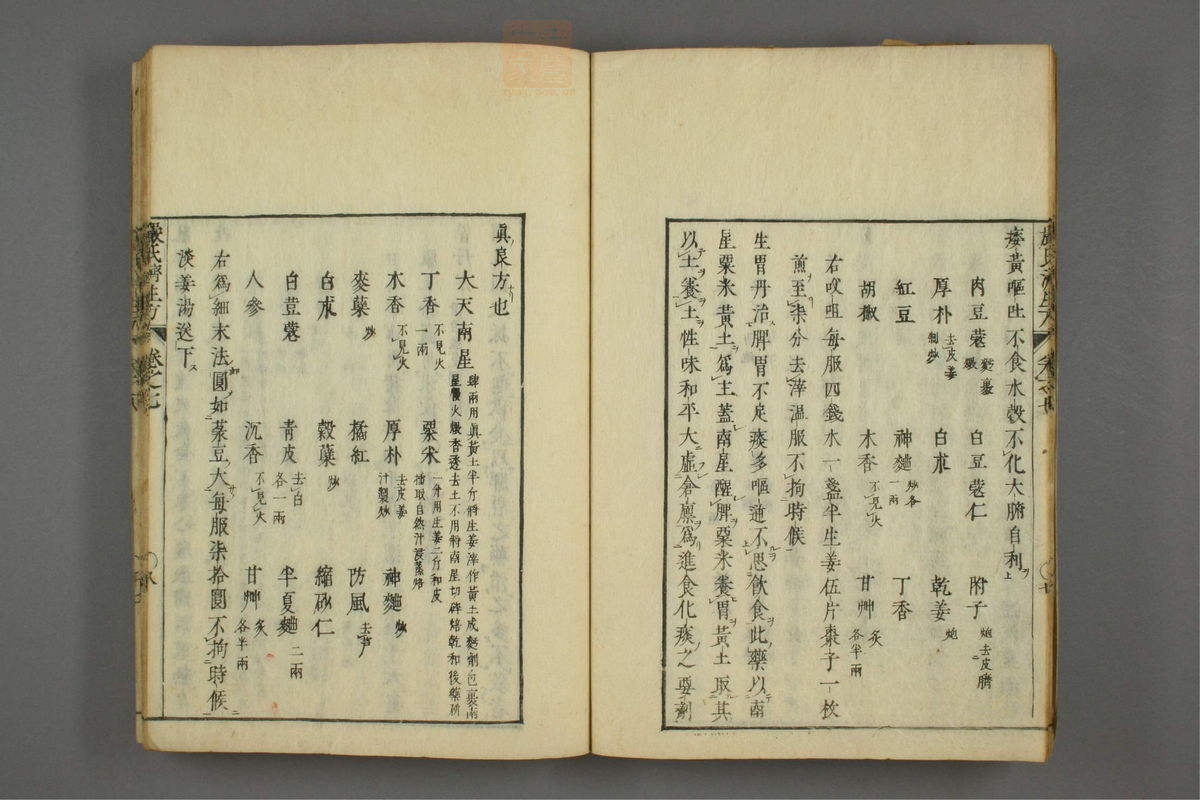 痿黃嘔吐不食水穀不化大腑自利
肉豆蔻 麪裹煨 白豆蔻仁 附子 炮去皮臍
厚朴 去皮姜制炒 白朮 乾姜 炮
紅豆 神麯 炒各一兩 丁香
胡椒 木香 不見火 甘艸 炙各半兩
右㕮咀每服四錢水一盞半生姜伍片棗子一枚
煎至柒分去滓溫服不拘時候
生胃丹治脾胃不足痰多嘔逆不思飲食此藥以南
星粟米黃土爲主蓋南星醒脾粟米養胃黃土取其
以土養土性味和平大虛倉廩爲進食化痰之要劑
嚴氏濟生方 卷之七 八
眞良方也
大天南星 肆兩用眞黃土半斤將生姜滓作黃土成麪劑包裹南星慢火煨香透去土不用將南星切碎焙乾和後藥硏
丁香 不見火一兩 粟米 一升用生姜二斤和皮擂取自然汁浸蒸焙
木香 不見火 厚朴 去皮姜汁製炒 神麯 炒
麥蘖 炒 橘紅 防風 去芦
白朮 穀蘖 炒 縮砂仁
白荳蔻 青皮 去白各一兩 半夏麯 二兩
人參 沉香 不見火 甘艸 炙各半兩
右爲細末法圓如菉豆大每服柒拾圓不拘時候
淡姜湯送下